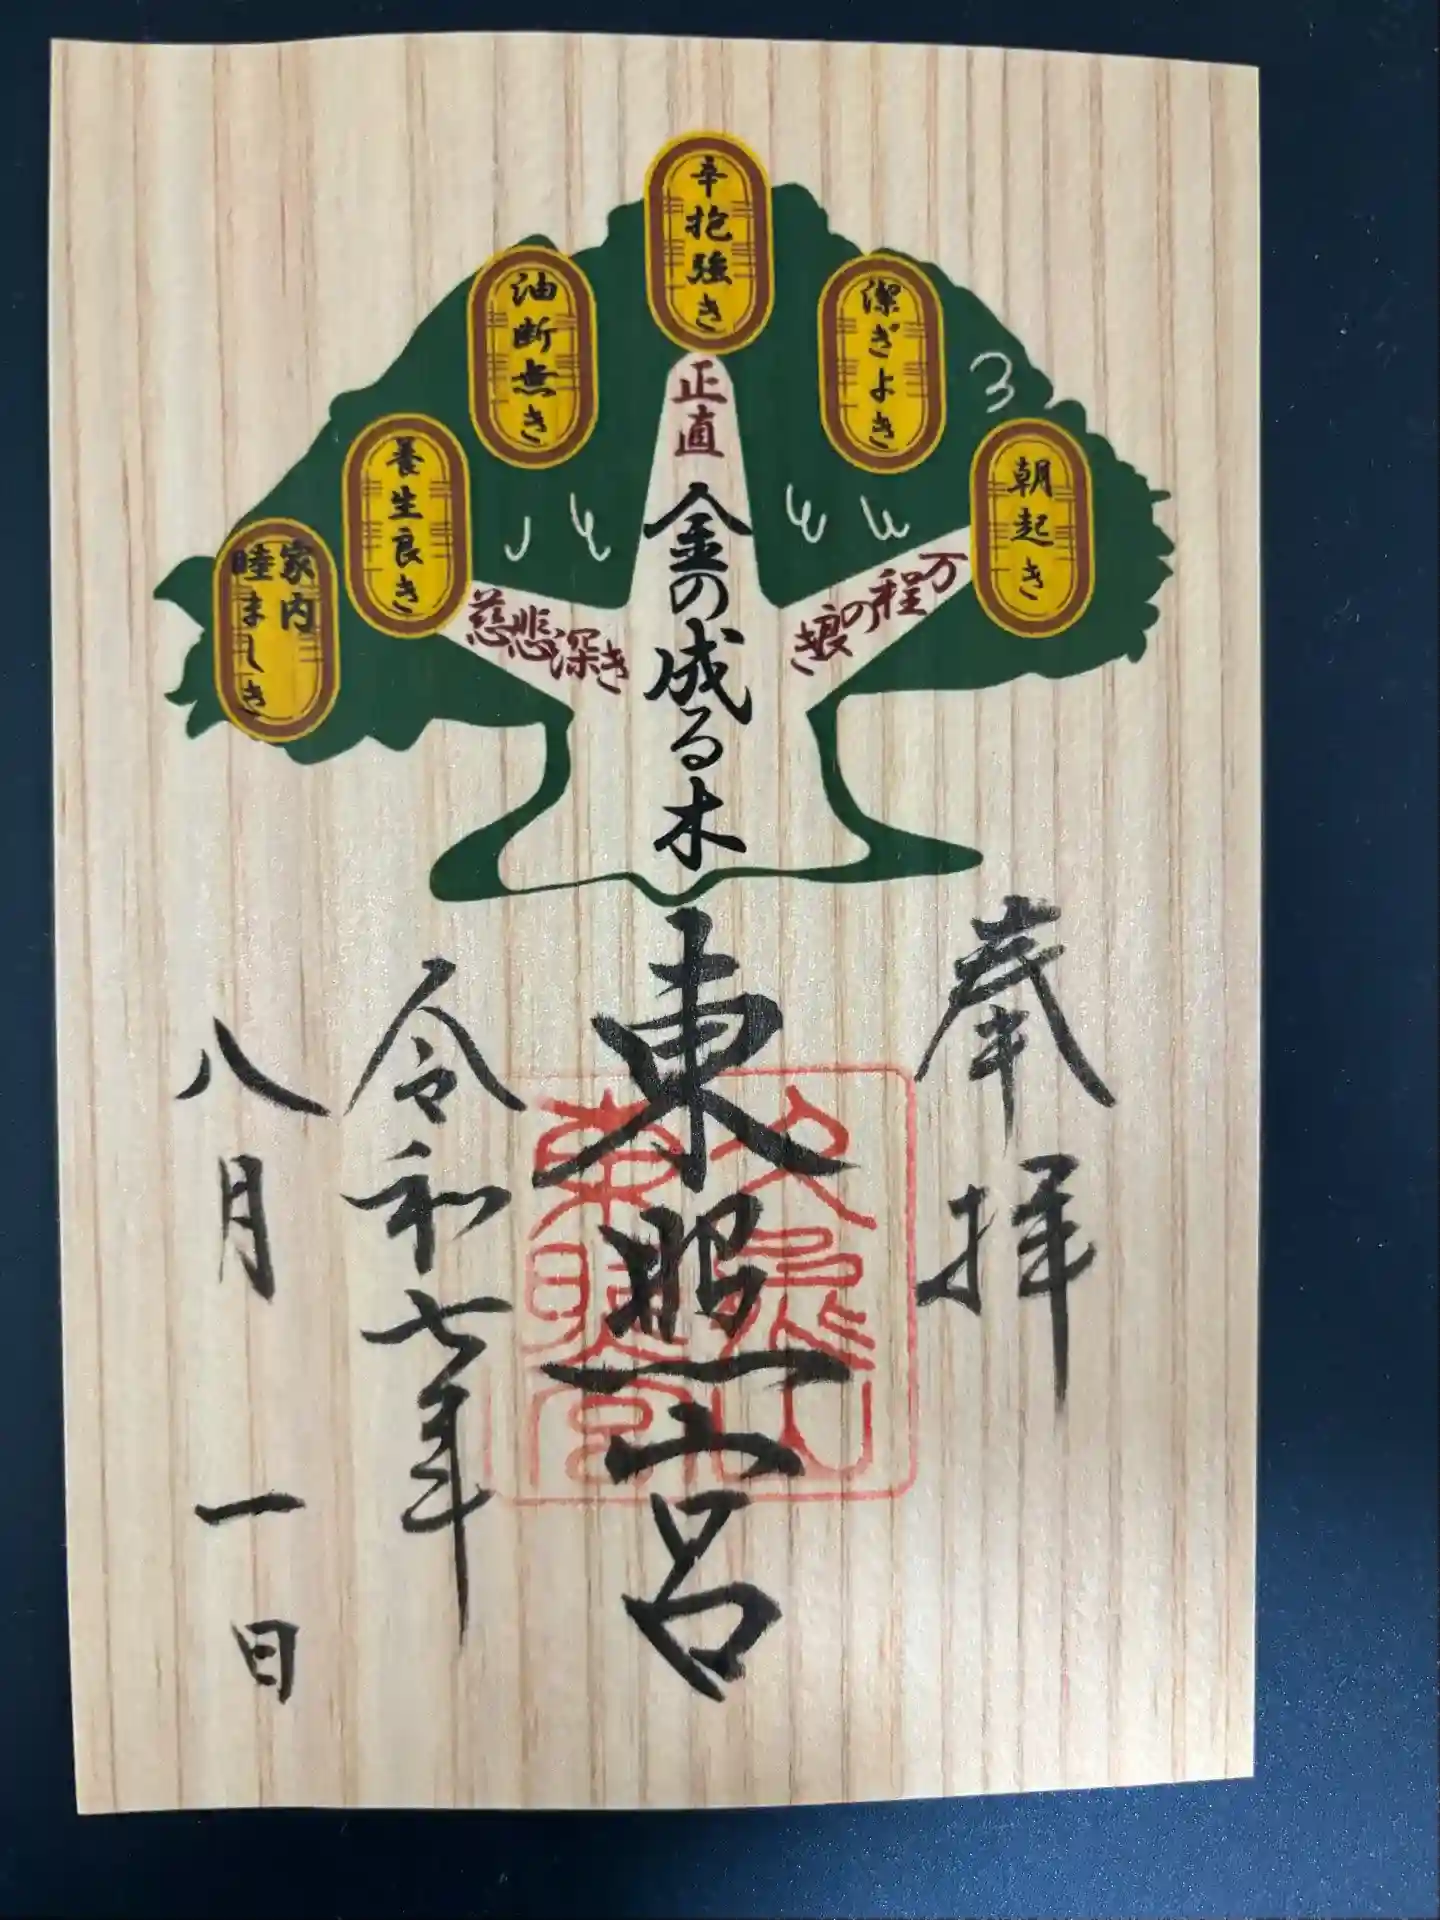 朝起き
潔ぎよき
辛抱強き
油断無き
養生良き
家内
睦ましき
万程の良き
正直
慈悲深き
金の成る木
奉拝
東照宮
令和七年
八月一日